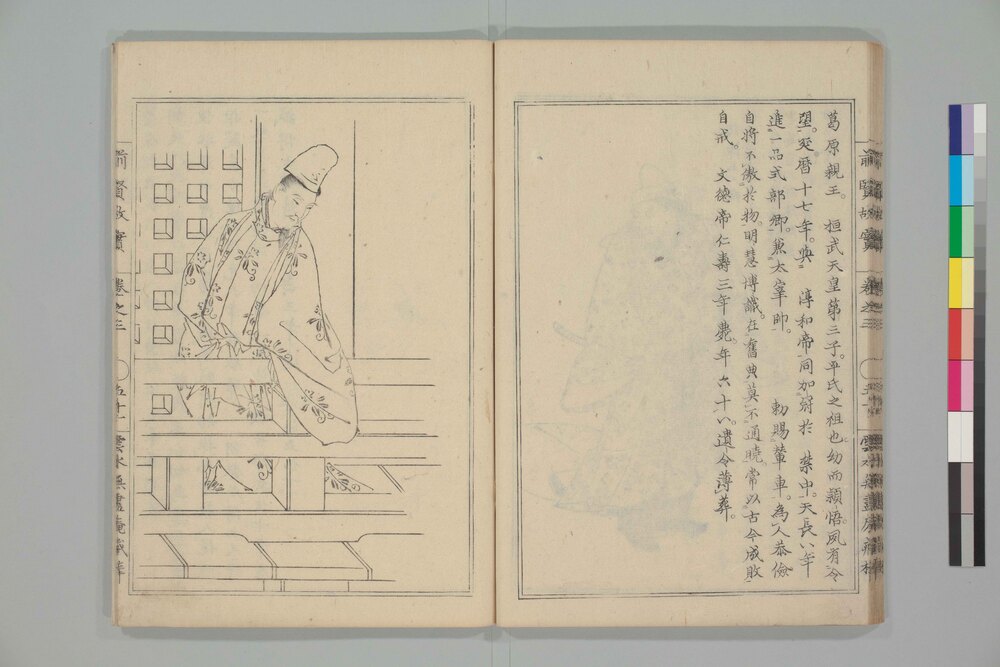 葛原親王。 桓武天皇第三子。平氏之祖也。幼而頴悟。夙有令
望。延暦十七年。與 淳和帝同加冠於 禁中。天長八年
進一品式部卿。兼太宰帥。 勅賜輦車。為人恭儉
自將不傲於物。明慧博識。在舊典莫不通曉。常以古今成敗
自戒。 文德帝仁壽三年薨。年六十八。遺令薄葬。
前賢故實 卷之三 五十一 雲水無盡庵藏梓